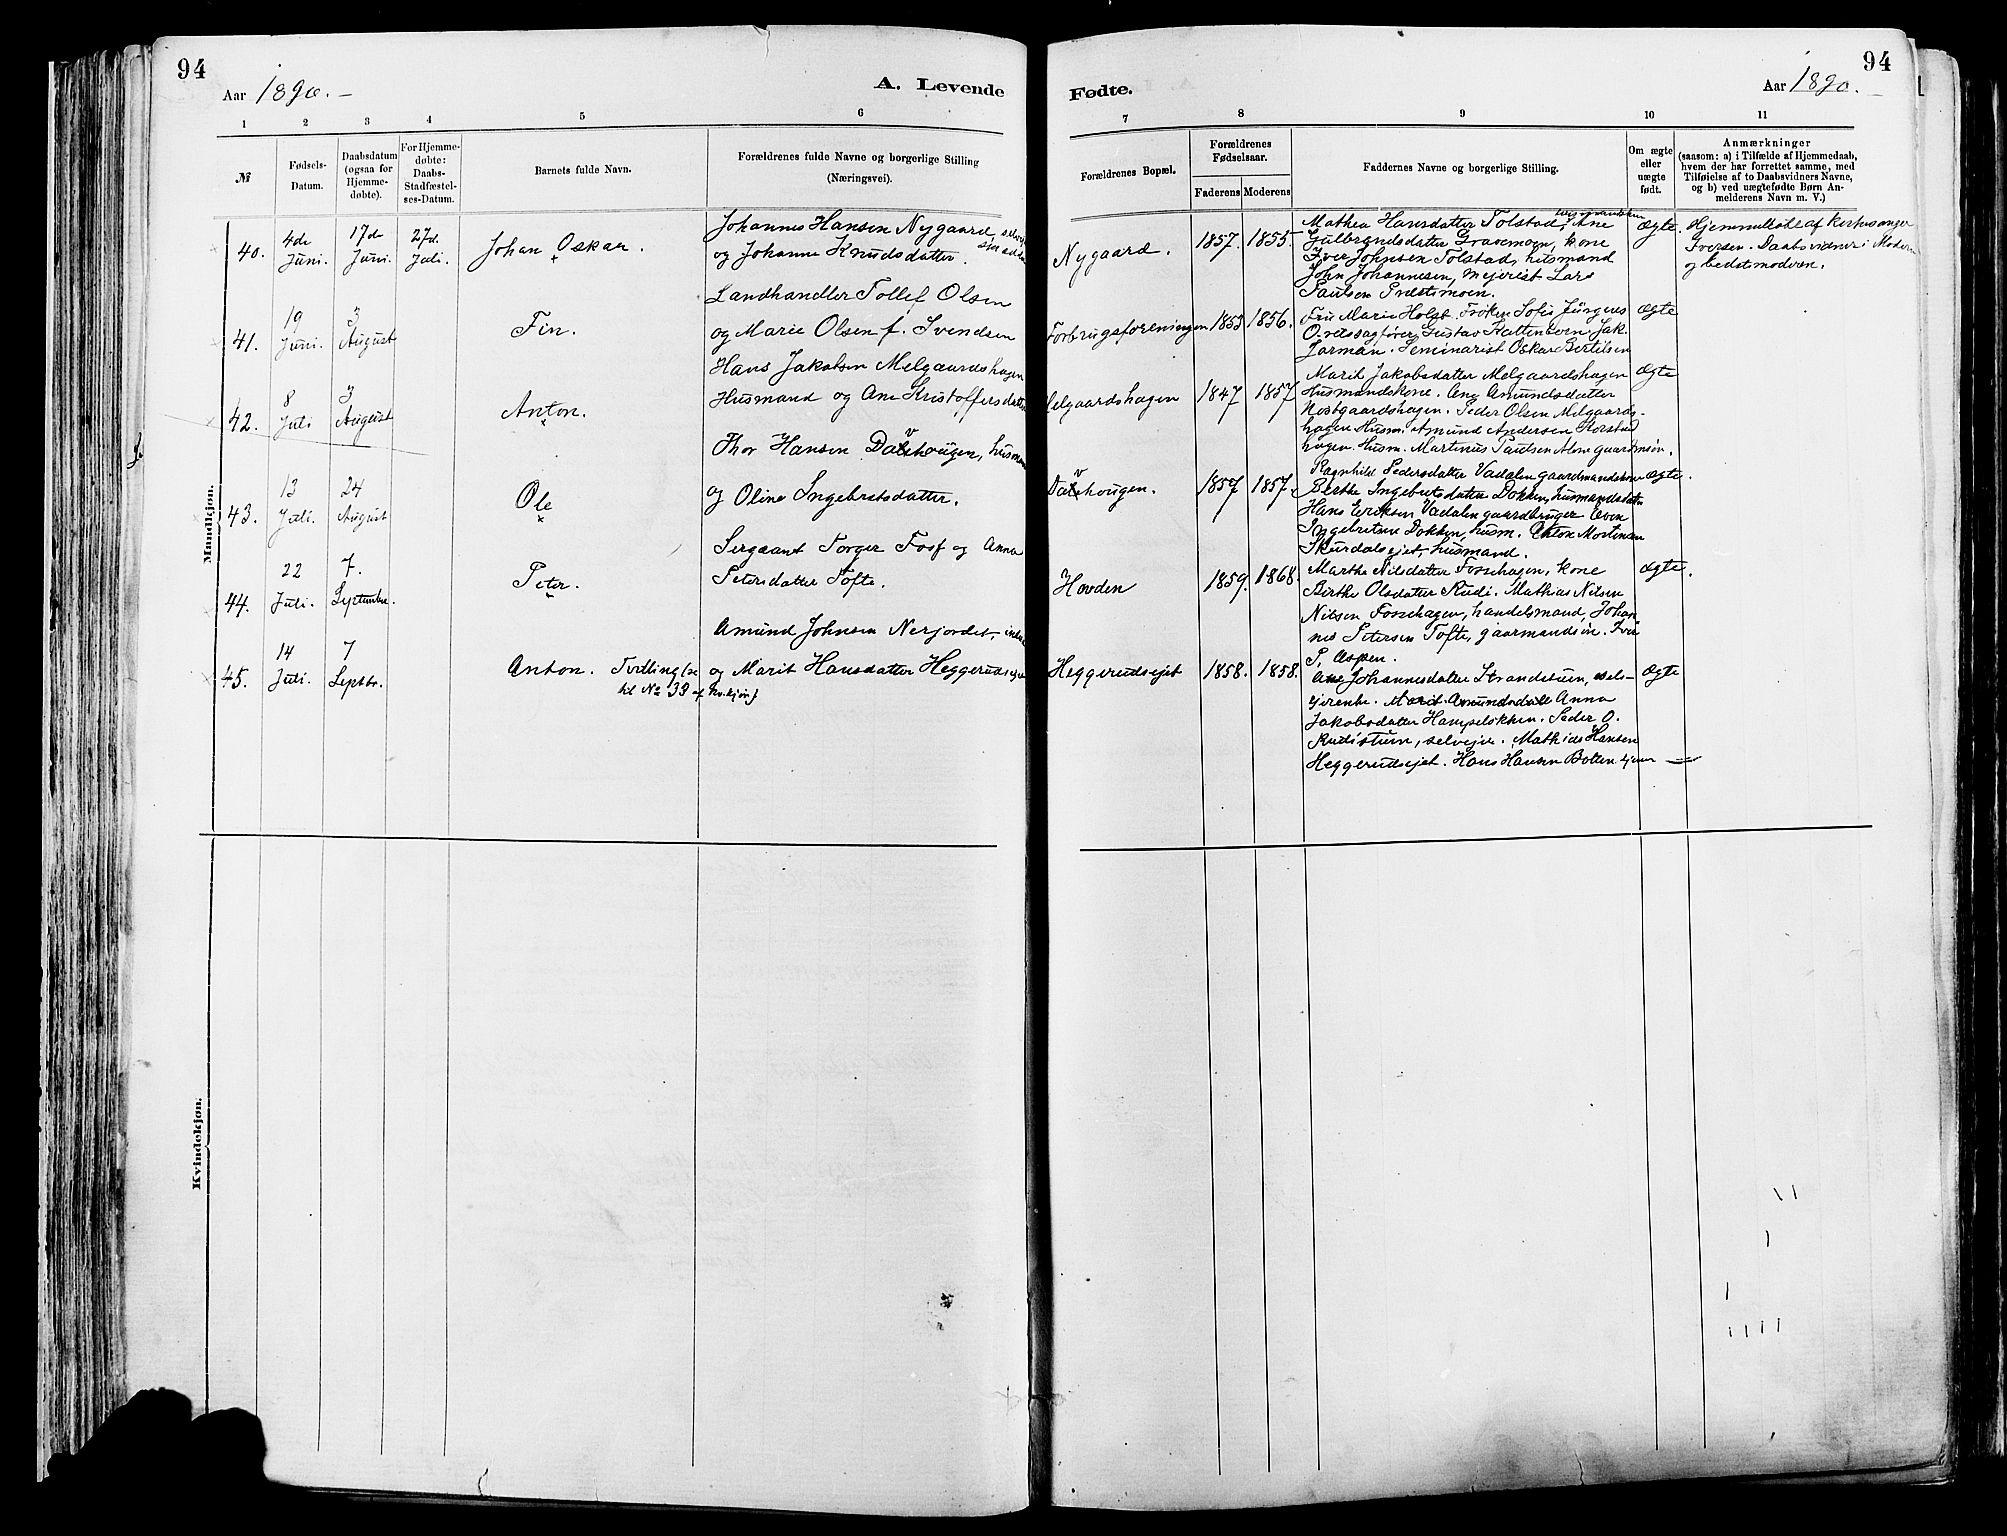 94
94
Aar 1890.
A. Levende
Fødte.
Aar 1890.
1 2 3 4 5 6
7 8 9 10 11
№
Fødsels-
Datum.
Daabsdatum
(ogsaa for
Hjemme-
døbte).
For Hjemme-
døbte:
Daabs-
Stadfæstel-
ses-Datum.
Barnets fulde Navn.
Forældrenes fulde Navne og borgerlige Stilling
(Næringsvei).
Forældrenes Bopæl.
Forældrenes
Fødselsaar.
Faderens Moderens
Faddernes Navne og borgerlige Stilling.
Om ægte
eller
uægte
født.
Anmærkninger
(saasom: a) i Tilfælde af Hjemmedaab,
hvem der har forrettet samme, med
Tilføielse af to Daabsvidners Navne,
og b) ved uægtefødte Børn An-
melderens Navn m. V.)
Mandkjøn.
40.
4de
Juni.
17d
Juni.
27d.
Juli.
Johan Oskar.
Johannes Hansen Nygaard
og Johanne Knudsdatter.
Nygaard.
1857. 1855.
Mathea Hansdatter Tolstad, Ane
Gulbrandsdatter Gravemoen, kone
Iver Johnsen Tolstad, husmand
John Johannesen, mejerist Lars
Paulsen Præstsmoen.
ægte.
Hjemmedøbt af kirkesanger
Iversen. Daabsvidner: Moderen
og bedstemoderen.
41.
19
Juni.
3
August
Fin.
Landhandler Tollef Olsen
og Marie Olsen f. Svendsen
Forbrugsforeningen
1853 1856.
Fru Marie Holst. Frøken Sofie Jürgens
Overssagfører Gustav Hattenbern. Jak.
Jorman. Seminarist Oskar Bertilsen
ægte
42.
8
Juli
3
August
Anton.
Hans Jakobsen Melgaardshagen
Husmand og Ane Kristoffersdatter
Melgaardshagen
1847 1857
Marit Jakobsdatter Melgaardshagen
Husmandskone. Ane Amundsdatter
Nostgaardshagen. Peder Olsen Melgaards-
hagen Husm. Amund Andersen
hagen Husm. Martinus Paulsen
ægte
43.
13
Juli.
24
August
Ole
Thor Hansen Dalehougen, husmand
og Oline Ingebretsdatter.
Dalehougen.
1857 1857.
Ragnhild Pedersdatter Vadalen gaardmandskone
Berthe Ingebretsdatter Dokken, husmandsdatter
Hans Eriksen Vadalen gaardbruger Even
Ingebretsen Dokken, husm. Anton Mortensen
Skurdalsejet, husmand.
ægte.
44.
22
Juli.
7.
September.
Peter.
Sergeant Torger Fosf og Anna
Petersdatter Tofte.
Hovden
1859. 1868.
Marthe Nilsdatter Fossehagen, kone
Birthe Olsdatter Rudi. Mathias Nilsen
Nilsen Fossehagen, handelsmand, Johan-
nes Petersen Tofte, gaarmandsøn. Iver
P. Aspen.
ægte.
45.
14
Juli.
7
Septbr.
Anton. Tvilling
til No 39 af Kvkjøn
Amund Johnsen Nerjordet,
og Marit Hansdatter Heggerudsejet
Heggerudsejet
1858. 1858.
Ane Johannesdatter Strandstuen, sels-
tjerente. Marit Amundsdatter Anna
Jakobsdatter Hampeløkken. Peder O.
Rudistuen, selvejer. Mathias Hansen
Heggerudsejet. Hans Hansen Botten tjener
ægte
Kvindekjøn.